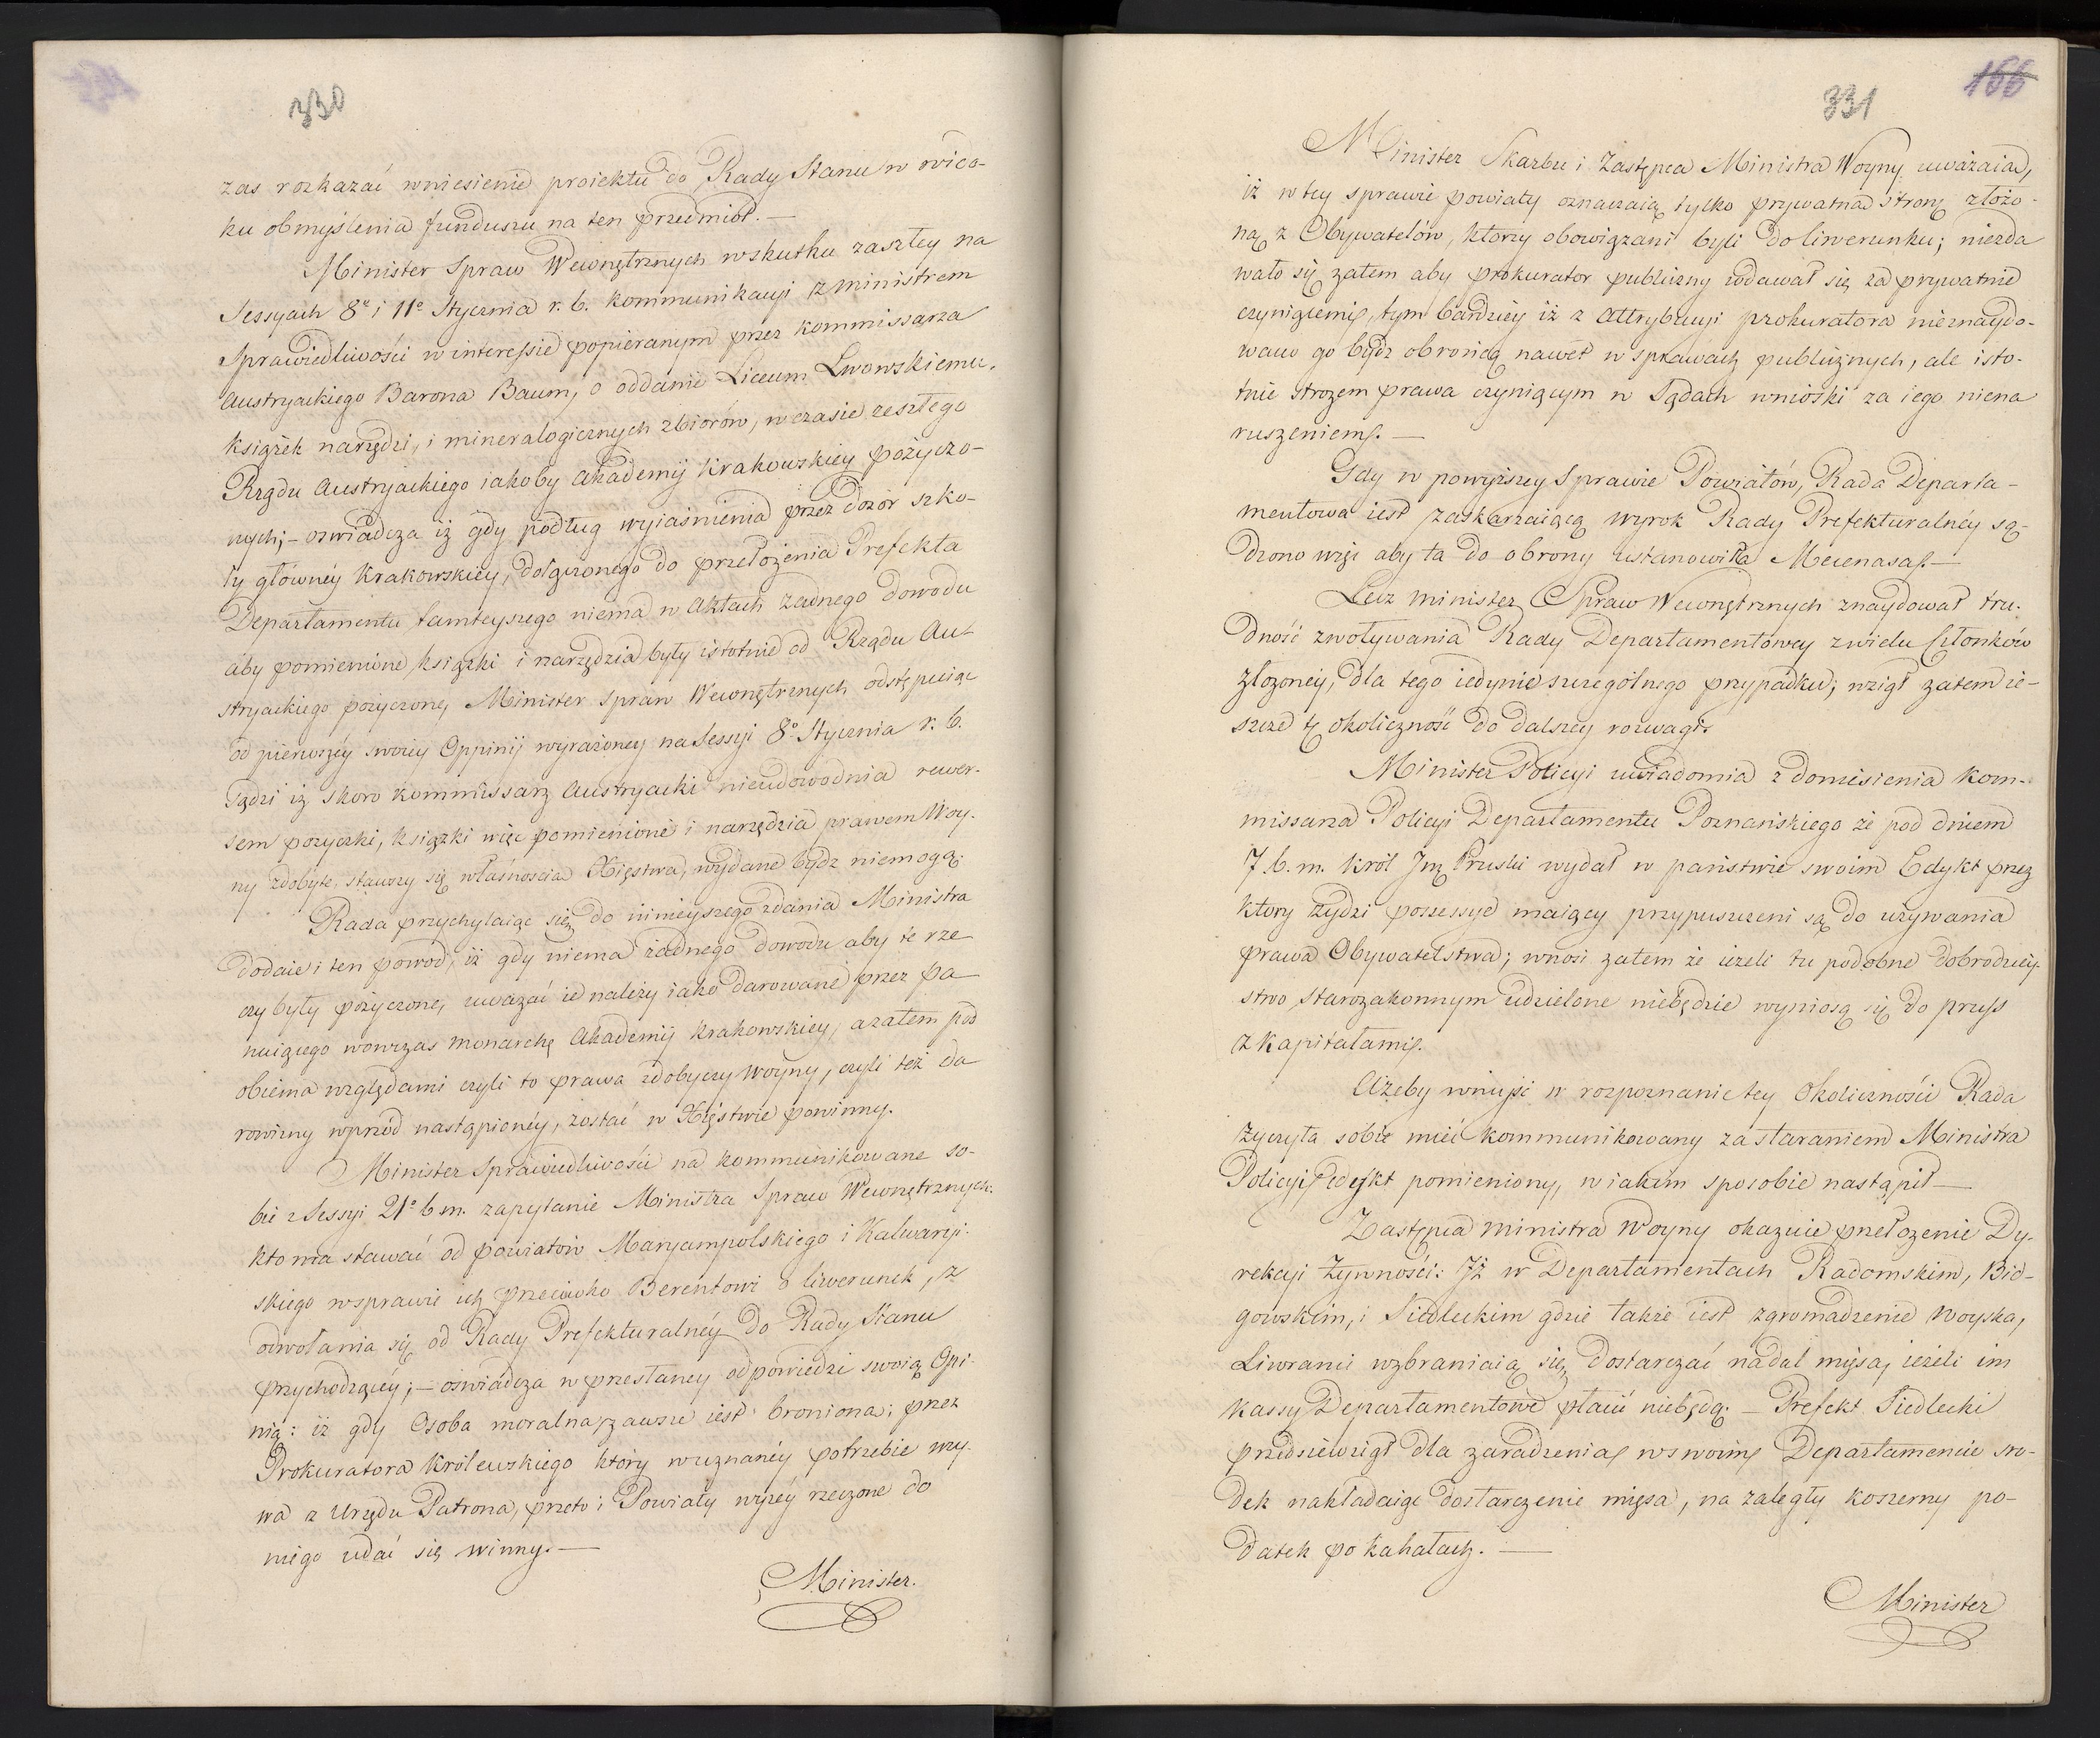 330
zas rozkazać wniesienie proiektu do Rady Stanu w wido-
ku obmyślenia funduszu na ten przedmiot. —
Minister Spraw Wewnętrznych wskutku zaszłey na
Sessyach 8º i 11º Stycznia r. b. kommunikacyi z ministrem
Sprawiedliwości w interessie popieranym przez kommissarza
Austryackiego Barona Baum, o oddanie Liceum Lwowskiemu,
książek narzędzi, i mineralogicznych zbiorów, w czasie zeszłego
Rządu Austryackiego iakoby Akademij Krakowskiey pożyczo-
nych; – oswiadcza iż gdy podług wyiaśnienia przez dozór szko-
ły główney Krakowskiey, dołączonego do przełożenia Prefekta
Departamentu tamteyszego niema w Aktach żadnego dowodu
aby pomienione książki i narzędzia były istotnie od Rządu Au-
stryackiego pożyczone, Minister Spraw Wewnętrznych odstępuiąc
od pierwszéy swoiey Oppinij wyrażoney na Sessyi 8º Stycznia r. b.
sądzi iż, skoro kommissarz Austryacki nieudowodnia rewer-
sem pożyczki, książki więc pomienione i narzędzia prawem Woy-
ny zdobyte, stawszy się własnoscia Xięstwa, wydane bydz niemogą.
Rada przychylaiąc się do ninieyszego zdania Ministra
dodaie i ten powod, iż gdy niema żadnego dowodu aby te rze
czy były pożyczone, uważać ie należy iako darowane przez pa
nuiącego wowczas monarchę Akademij Krakowskiey, a zatem pod
obiema względami czyli to prawa zdobyczy woyny, czyli też da
rowizny wprzód nastąpionéy, zostać w Xięstwie powinny.
Minister Sprawiedliwości na kommunikowane so-
bie z Sessyi 21º b m. zapytanie Ministra Spraw Wewnętrznych.
kto ma stawać od powiatów Maryampolskiego i Kalwaryi-
skiego w sprawie ich przeciwko Berentowi o liwerunek, z
odwołania się od Rady Prefekturalnéy do Rady Stanu
przychodzącéy; – oświadcza w przesłaney odpowiedzi swoią Opi-
nią: iż gdy Osoba moralna, zawsze iest broniona przez
Prokuratora Królewskiego który w uznanéy potrzebie wzy-
wa z Urzędu Patrona, przeto i Powiaty wyżéy rzeczone do
niego udać się winny. —
Minister.
331
166
Minister Skarbu i Zastępca Ministra Woyny uważaią,
iż w tey sprawie powiaty oznaczaią tylko prywatną stronę złożo-
ną z Obywatelów, którzy obowiązani byli do liwerunku; niezda
wało się zatem aby prokurator publiczny wdawał się za prywatnie
czyniącemi, tym bardziéy iż z Attrybucyi prokuratora nieznaydo-
wano go bydz obrońcą nawet w sprawach publicznych, ale isto-
tnie strożem prawa czyniącym w Sądach wnioski za iego niena
ruszeniem. —
Gdy w powyższey Sprawie Powiatów, Rada Departa-
mentowa iest zaskarzaiącą wyrok Rady Prefekturalnéy są-
dzono więc aby ta do obrony ustanowiła Mecenasa —
Lecz Minister Spraw Wewnętrznych znaydował tru-
dność zwoływania Rady Departamentowey z wielu Członków
złożoney, dla tego iedynie szczególnego przypadku; wziął zatem ie-
szcze tę okoliczność do dalszey rozwagi.
Minister Policyi uwiadomia z doniesienia kom-
missarza Policyi Departamentu Poznańskiego że pod dniem
7 b. m. Król Jmę Pruski wydał w państwie swoim Edykt przez
ktory żydzi possessye maiący przypuszczeni są do używania
prawa Obywatelstwa; wnosi zatem że ieżeli tu podobne dobrodziey-
stwo starozakonnym udzielone niebędzie wyniosą się do pruss
z kapitałami.
Ażeby wniyść w rozpoznanie tey Okoliczności Rada
życzyła sobie mieć kommunikowany za staraniem Ministra
Policyi edykt pomieniony, w iakim sposobie nastąpił —
Zastępca ministra Woyny okazuie przełożenie Dy-
rekcyi żywności: Iż w Departamentach Radomskim, Bid-
gowskim, i Siedleckim gdzie takze iest zgromadzenie woyska,
Liwranci wzbraniaią się dostarczać nadal mięsa, ieżeli im
kassy Departamentowe płacić niebędą. — Prefekt Siedlecki
przedsiewziął dla zaradzenia w swoim Departamencie śro-
dek nakładaiąc dostarczenie mięsa, na zaległy koszerny po-
datek po kahałach. —
Minister